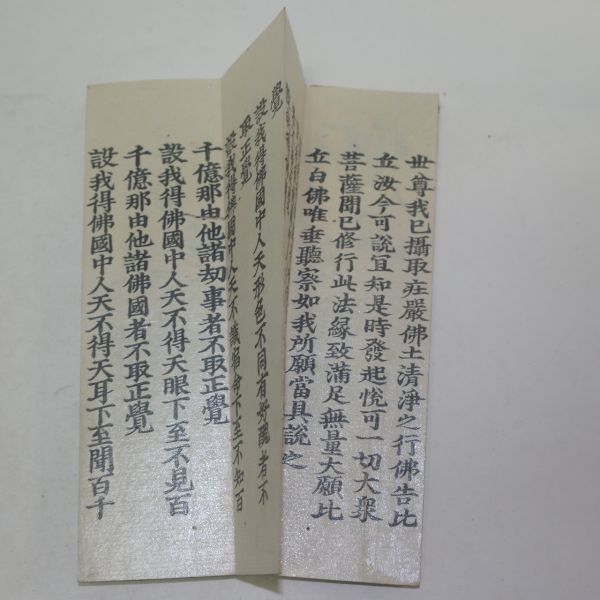 世尊我已攝取莊嚴佛土清淨之行佛告比
丘汝今可說宜知是時發起悅可一切大衆
菩薩聞已修行此法緣致滿足無量大願比
丘白佛唯垂聽察如我所願當具說之
覺
設我得佛國中人天形色不同有好醜者不
取正覺
設我得佛國中人天不識宿命下至不知百
千億那由他諸劫事者不取正覺
設我得佛國中人天不得天眼下至不見百
千億那由他諸佛國者不取正覺
設我得佛國中人天不得天耳下至聞百千